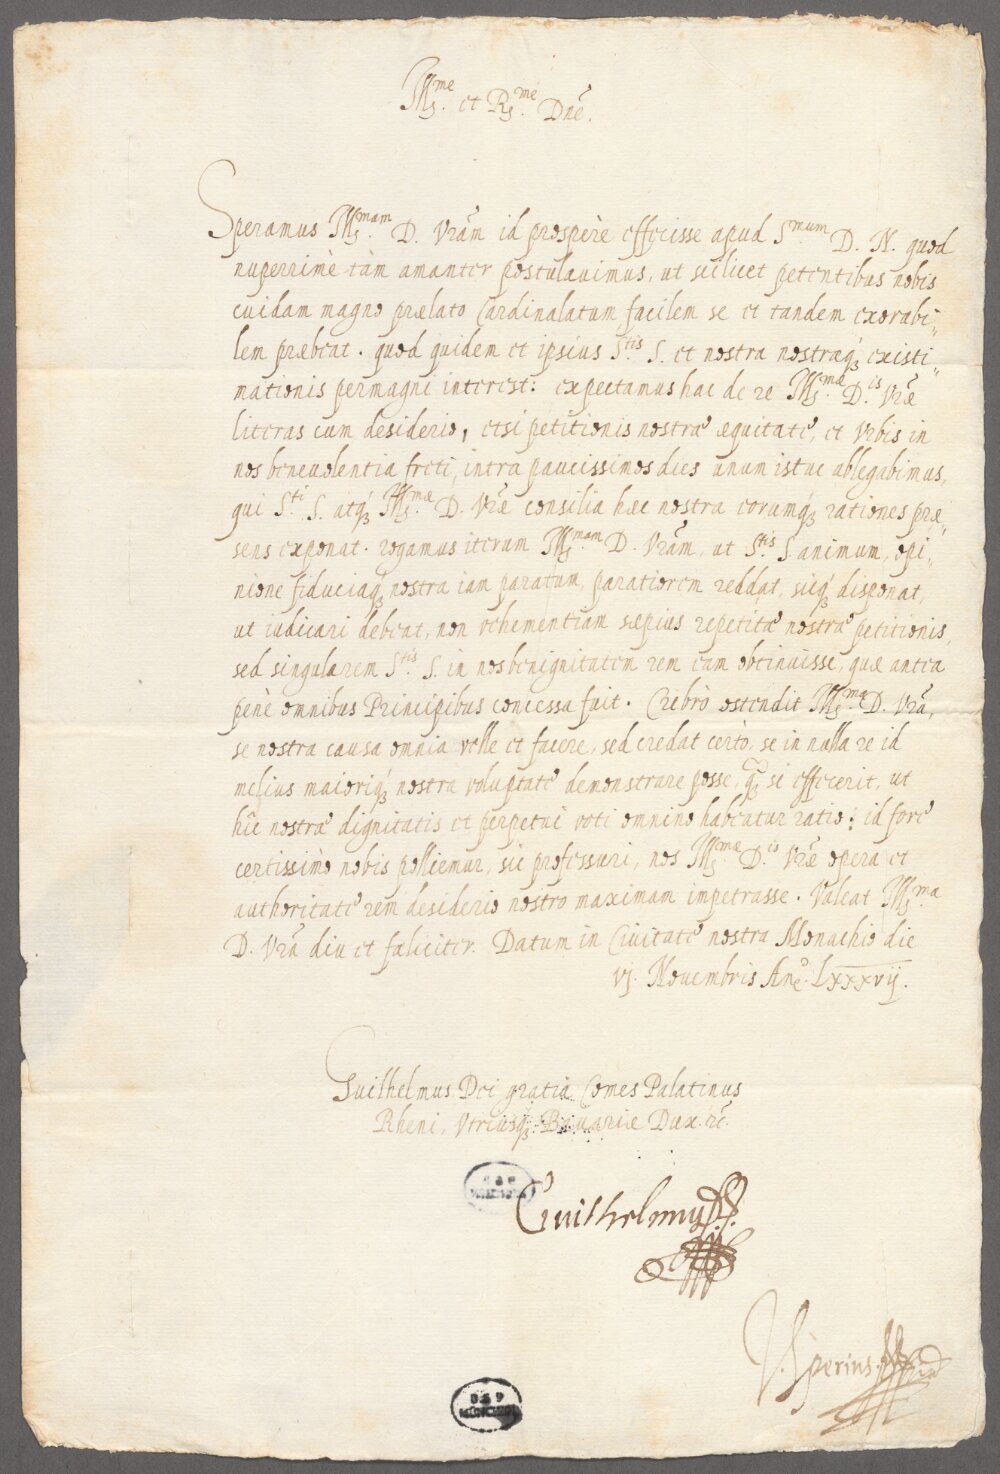 Ill.me et R.me Dne.
Speramus Ill.mam D. Vram id prosperè effecisse apud S.mum D. N. quod
nuperrimè tàm amanter postulauimus, ut scilicet petentibus nobis
cuidam magno prælato Cardinalatum facilem se et tandem exorabi-
lem præbeat. quod quidem et ipsius S.tis S. et nostra nostræq3 existi-
mationis permagni interest: expectamus hac de re Ill.mæ D.is Vræ
literas cum desiderio, etsi petitionis nostræ æquitate, et Vrbis in
nos beneuolentia freti, intra paucissimos dies unum istuc ablegabimus,
qui S.ti S. atq3 Ill.mæ D. Vræ consilia hæc nostra eorumq3 rationes præ-
sens exponat. rogamus iterum Ill.mam D. Vram, ut S.tis S animum, opi-
nione fiduciaq3 nostra iam paratum, paratiorem reddat, sicq3 disponat,
ut iudicari debeat, non vehementiam sæpius repetitæ nostræ petitionis,
sed singularem S.tis S. in nos benignitatem rem eam obtinuisse, quæ antea
penè omnibus Principibus concessa fuit. Crebrò ostendit Ill.ma D. Vra,
se nostra causa omnia velle et facere, sed credat certò, se in nulla re id
melius maioriq3 nostra voluptate demonstrare posse, q3 si effecerit, ut
hîc nostræ dignitatis et perpetui voti omnino habeatur ratio: id fore
certissimò nobis pollicemur, sic professuri, nos Ill.mæ D.is Vræ opera et
authoritate rem desiderio nostro maximam impetrasse. Valeat Ill.ma
D. Vra diu et fæliciter. Datum in Ciuitate nostra Monachio die
vj. Nouembris Anō. Lxxxvij.
Guilhelmus Dei gratia Comes Palatinus
Rheni, Vtriusq3 Bauariæ Dux. rc.
Guilhelmus
BSB
MÜNCHEN